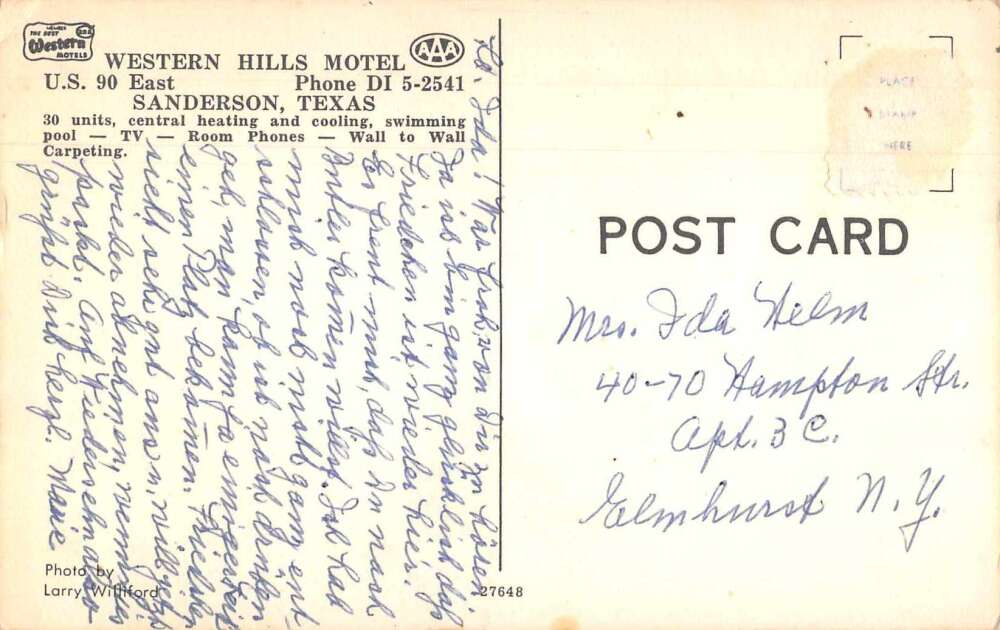 MEMBER
THE BEST
Western
MOTELS
AAA
WESTERN HILLS MOTEL
U.S. 90 East Phone DI 5-2541
SANDERSON, TEXAS
30 units, central heating and cooling, swimming
pool — TV — Room Phones — Wall to Wall
Carpeting.
Lb. Ida! War froh von Dir zu hören
Ja ich bin ganz glücklich daß
Friedchen ist wieder hier.
Es freut mich, daß Du nach
kommen willst. Ich hab
mich noch nicht ganz ent-
schlossen, ob ich nach
geh, man kann ja
einen Platz bekommen. Friedchen
sieht sehr gut aus u. will jetzt
wieder abnehmen, wenn sie
paßt. Auf Wiedersehn
grüßt Dich herzl. Marie
Photo by
Larry Williford
27648
PLACE
STAMP
HERE
POST CARD
Mrs. Ida Helm
40-70 Hampton Str.
Apt. 3 C.
Elmhurst N.Y.